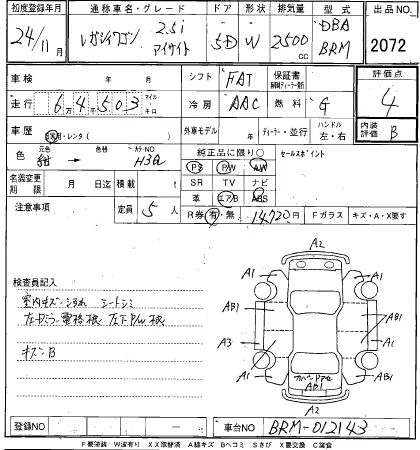 初度登録年月 通称車名・グレード ドア 形状 排気量 型式 出品NO.
24/11月 レガシィワゴン 2.5i アイサイト 5D W 2500cc DBA BRM 2072
車検 年 月 シフト FAT 保証書 評価点
走行 6万4千503 マイル キロ 冷房 AAC 燃料 G 4
車歴 自家用・レンタ( ) 外車モデル 年 ディーラー・並行 ハンドル 左・右 内装評価 B
色 元色 紺 色替 カラーNO H3Q 純正品に限り○ セールスポイント
PS PW AW
名義変更期限 月 日迄 積載 t SR TV ナビ
革 エアB ABS
注意事項 定員 5人 R券 有・無 14720円 Fガラス キズ・A・X要す
検査員記入
室内キズ シートシミ
キズB
A2
A1 A1
AB1 AB1
A3 A1
A1 AB1
AB1
A2
登録NO 車台NO BRM-012143
P要塗装 W波有り XX取替済 A線キズ Bヘコミ Sさび X要交換 C腐食